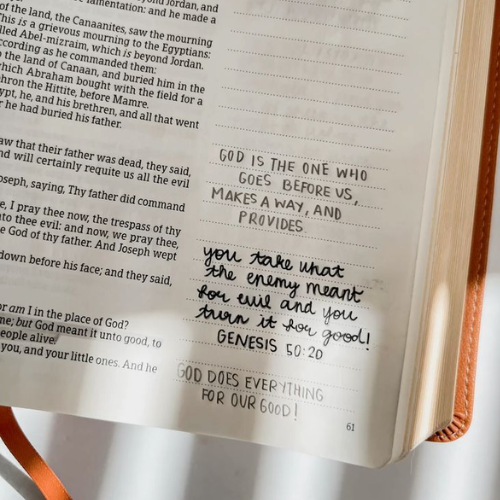 eyond Jordan, and
lamentation: and he made a
of the land, the Canaanites, saw the mourning
This is a grievous mourning to the Egyptians:
lled Abel-mizraim, which is beyond Jordan.
ccording as he commanded them:
the land of Canaan, and buried him in the
which Abraham bought with the field for a
phron the Hittite, before Mamre.
ypt, he, and his brethren, and all that went
r he had buried his father.
aw that their father was dead, they said,
nd will certainly requite us all the evil
oseph, saying, Thy father did command
e, I pray thee now, the trespass of thy
nto thee evil: and now, we pray thee,
e God of thy father. And Joseph wept
down before his face; and they said,
or am I in the place of God?
me; but God meant it unto good, to
eople alive.
you, and your little ones. And he
GOD IS THE ONE WHO
GOES BEFORE US,
MAKES A WAY, AND
PROVIDES
you take what
the enemy meant
for evil and you
turn it for good!
GENESIS 50:20
GOD DOES EVERYTHING
FOR OUR GOOD!
61